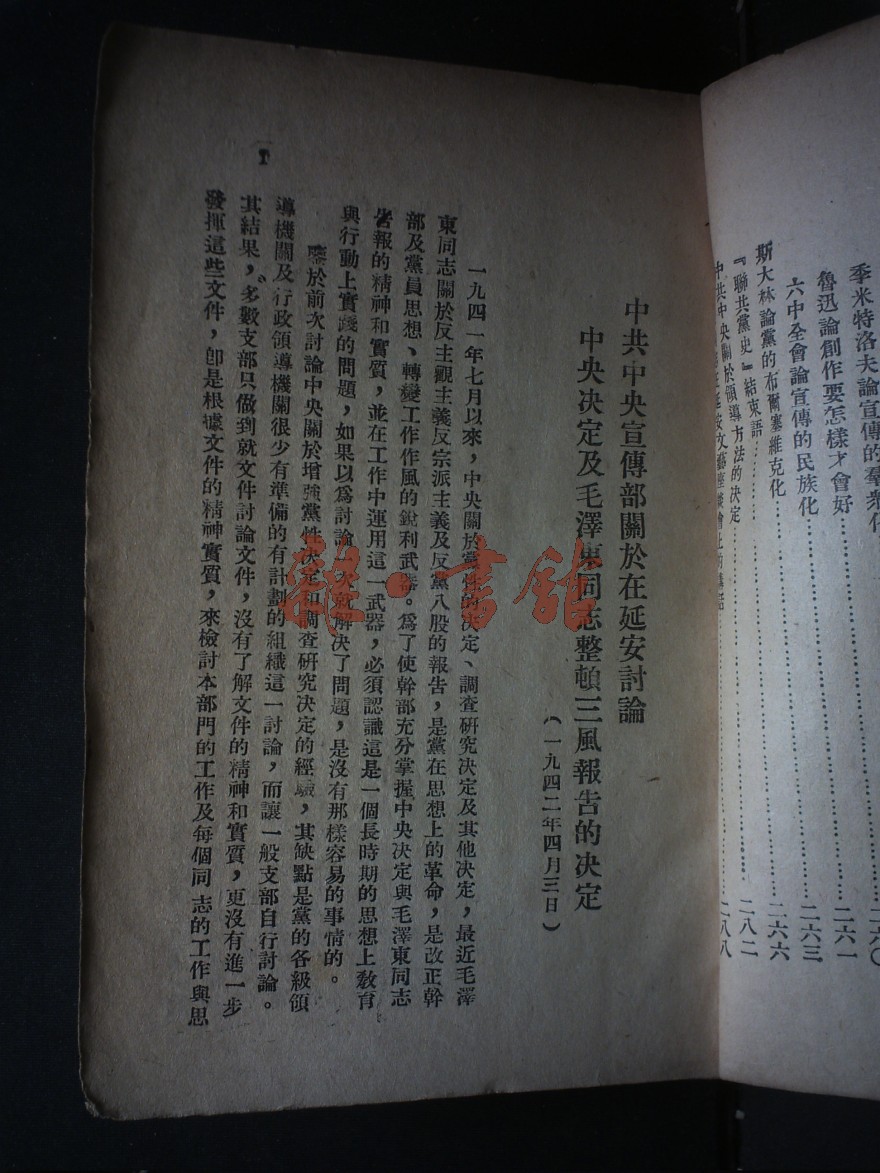 季米特洛夫論宣傳的羣衆化……………二六〇
魯迅論創作要怎樣才會好……………二六一
六中全會論宣傳的民族化……………二六三
斯大林論黨的布爾塞維克化……………二六六
『聯共黨史』結束語……………二八二
中共中央關於領導方法的決定……………二八八
延安文藝座談會上的講話
中共中央宣傳部關於在延安討論
中央決定及毛澤東同志整頓三風報告的決定
(一九四二年四月三日)
一九四一年七月以來,中央關於黨性的決定、調查研究決定及其他決定,最近毛澤
東同志關於反主觀主義反宗派主義及反黨八股的報告,是黨在思想上的革命,是改正幹
部及黨員思想、轉變工作作風的銳利武器。爲了使幹部充分掌握中央決定與毛澤東同志
告報的精神和實質,並在工作中運用這一武器,必須認識這是一個長時期的思想上教育
與行動上實踐的問題,如果以爲討論一次就解決了問題,是沒有那樣容易的事情的。
鑒於前次討論中央關於增強黨性決定和調查研究決定的經驗,其缺點是黨的各級領
導機關及行政領導機關很少有準備的有計劃的組織這一討論,而讓一般支部自行討論。
其結果,多數支部只做到就文件討論文件,沒有了解文件的精神和實質,更沒有進一步
發揮這些文件,卽是根據文件的精神實質,來檢討本部門的工作及每個同志的工作與思
1
雜·書館